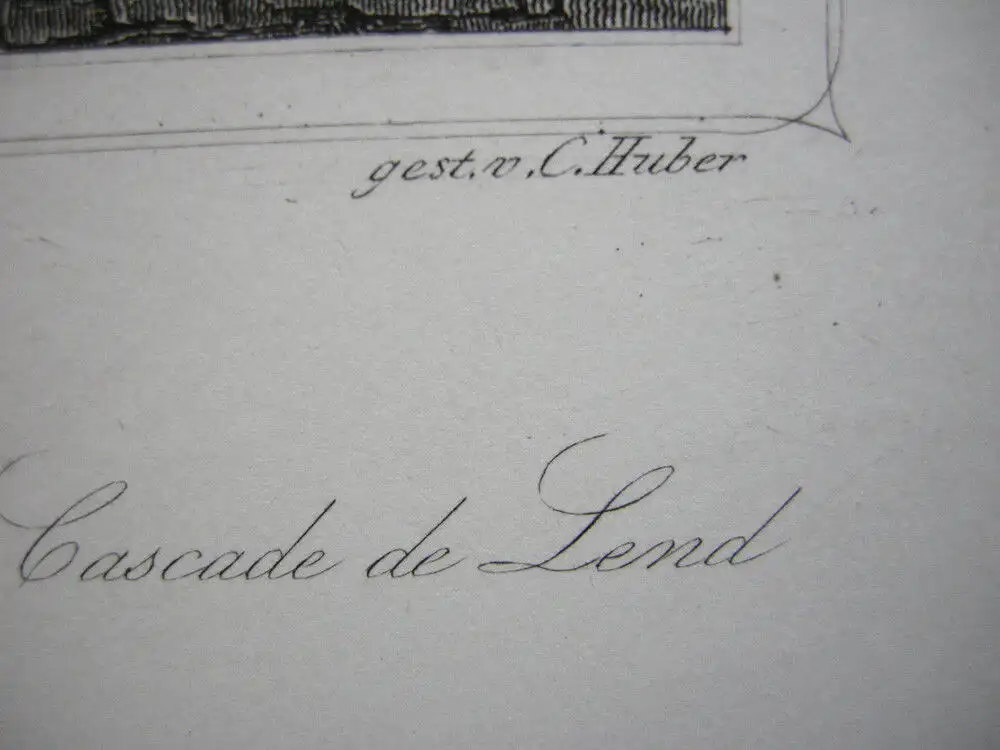 gest. v. C. Huber
Cascade de Lend